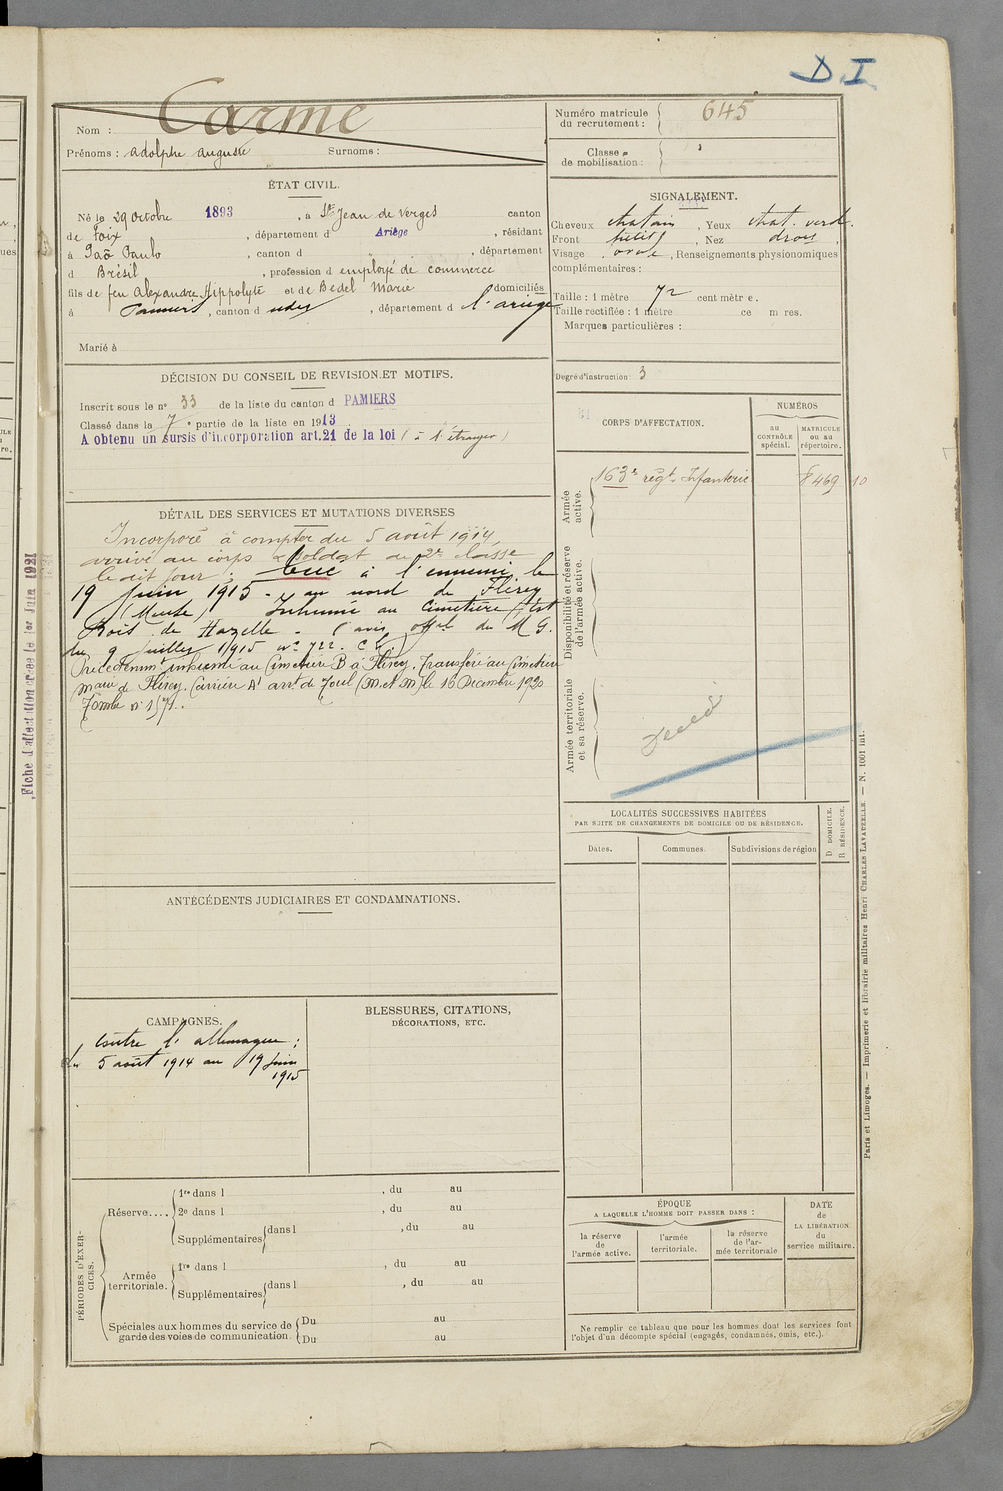 D.I
Nom : Carme
Prénoms : Adolphe Auguste Surnoms :
Numéro matricule du recrutement : 645
Classe de mobilisation :
ÉTAT CIVIL.
Né le 29 Octobre 1893, à St Jean de Verges canton
de Foix, département d Ariège, résidant
à Saô Paulo, canton d , département
d Brésil, profession d employé de commerce
fils de feu Alexandre Hippolyte et de Bedel Marie domiciliés
à Pamiers, canton d udes, département d l'ariège
Marié à
SIGNALEMENT.
Cheveux chatain, Yeux chat. verd.
Front petit, Nez droit,
Visage ovale, Renseignements physionomiques
complémentaires :
Taille : 1 mètre 72 centimètre.
Taille rectifiée : 1 mètre ce m res.
Marques particulières :
Degré d'instruction : 3
DÉCISION DU CONSEIL DE REVISION ET MOTIFS.
Inscrit sous le no 33 de la liste du canton d PAMIERS
Classé dans la 7e partie de la liste en 1913
A obtenu un sursis d'incorporation art. 21 de la loi (à l'étranger)
DÉTAIL DES SERVICES ET MUTATIONS DIVERSES
Incorporé à compter du 5 août 1914,
arrivé au corps & soldat de 2e classe
le dit jour. Tué à l'ennemi le
19 Juin 1915 - au nord de Flirey
(Meuse) Inhumé au Cimetière Est
Bois de Hazelle - (avis offel du M G.
du 9 Juillet 1915 no 722.
Précédemmt inhumé au Cimetière B à Flirey. Transféré au Cimetière
de Flirey. Carrière A' arrt de Toul (M. et M) le 16 Décembre 1920
Tombe n° 1571.
CORPS D'AFFECTATION.
NUMÉROS
au CONTRÔLE spécial.
MATRICULE ou au répertoire.
Armée active.
163e régt. Infanterie 8469
10
Disponibilité et réserve de l'armée active.
Armée territoriale et sa réserve.
Décédé
LOCALITÉS SUCCESSIVES HABITÉES
PAR SUITE DE CHANGEMENTS DE DOMICILE OU DE RÉSIDENCE.
Dates.
Communes.
Subdivisions de région
D DOMICILE.
R RÉSIDENCE.
ANTÉCÉDENTS JUDICIAIRES ET CONDAMNATIONS.
CAMPAGNES.
Contre l'allemagne :
Du 5 août 1914 au 19 Juin
1915
BLESSURES, CITATIONS,
DÉCORATIONS, ETC.
PÉRIODES D'EXERCICES.
Réserve....
1re dans l , du au
2e dans l , du au
Supplémentaires dans l , du au
Armée territoriale.
1re dans l , du au
Supplémentaires dans l , du au
Spéciales aux hommes du service de garde des voies de communication.
Du au
Du au
ÉPOQUE
A LAQUELLE L'HOMME DOIT PASSER DANS :
la réserve de l'armée active.
l'armée territoriale.
la réserve de l'armée territoriale
DATE de LA LIBÉRATION du service militaire.
Ne remplir ce tableau que pour les hommes dont les services font
l'objet d'un décompte spécial (engagés, condamnés, omis, etc.).
Paris et Limoges. — Imprimerie et librairie militaires Henri CHARLES LAVAUZELLE. — N. 1001 int.
Fiche d'affectation créée le 1er Juin 1921